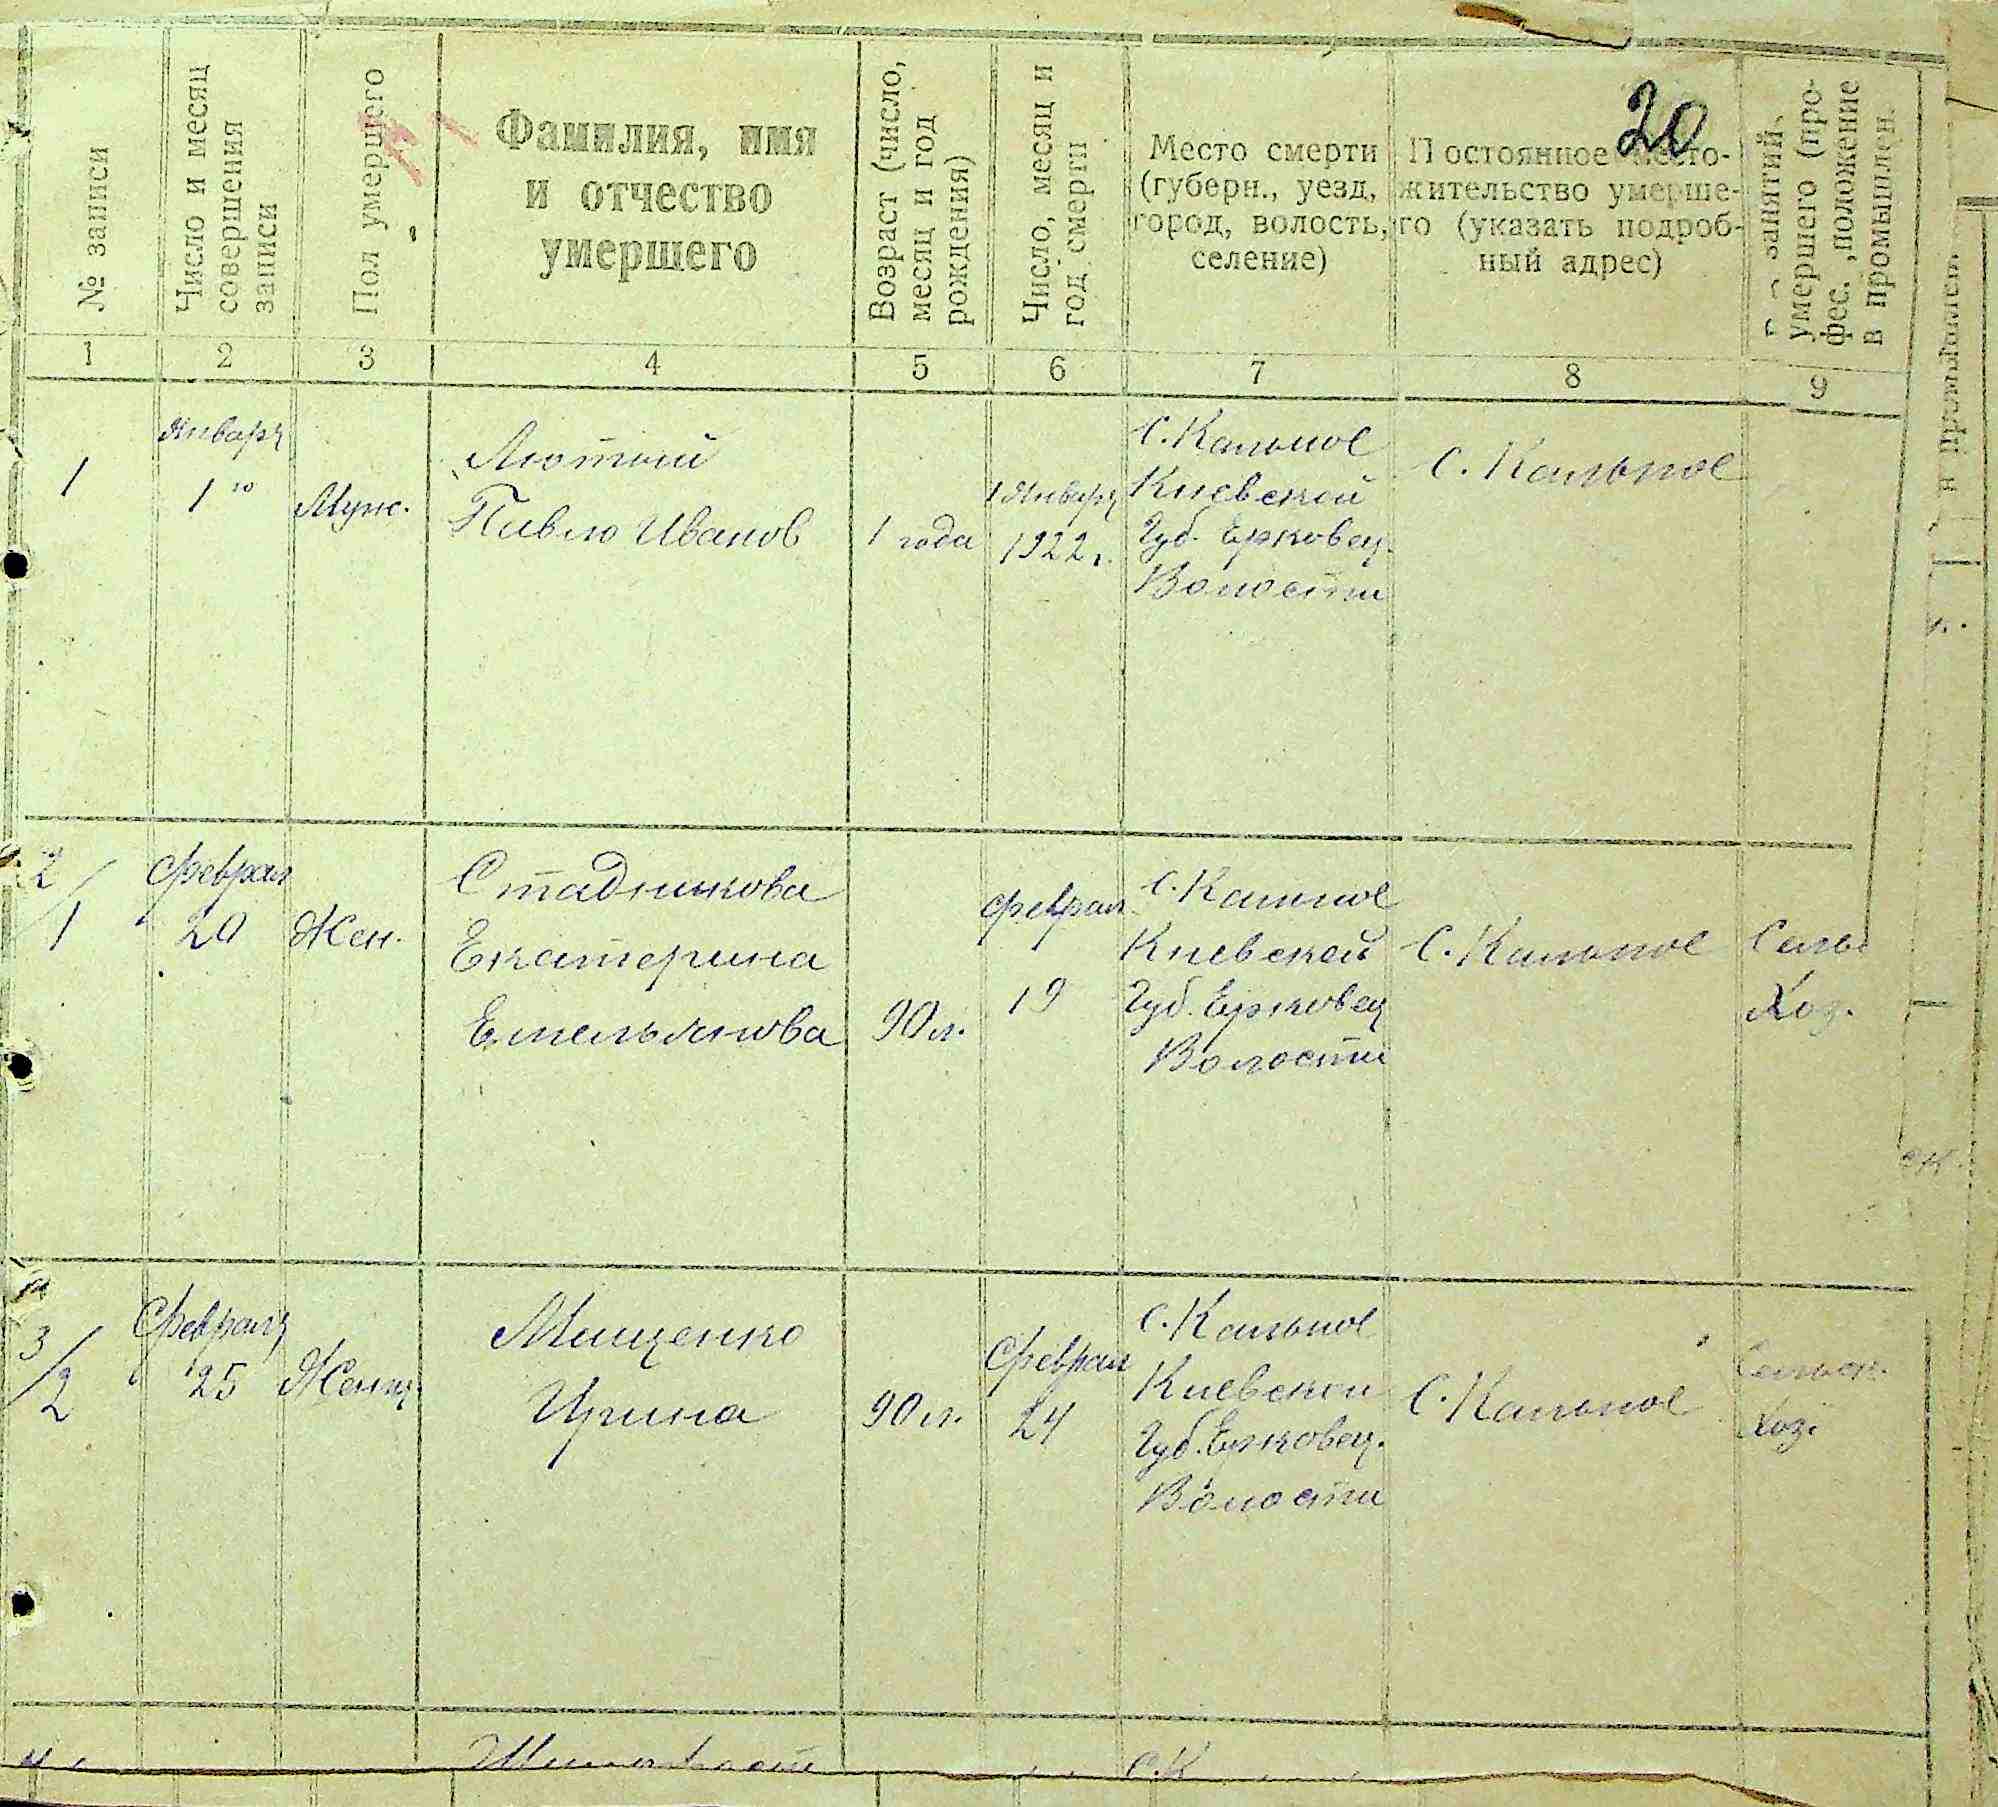 20
№ записи
Число и месяц
совершения
записи
Пол умершего
Фамилия, имя
и отчество
умершего
Возраст (число,
месяц и год
рождения)
Число, месяц и
год смерти
Место смерти
(губерн., уезд,
город, волость,
селение)
Постоянное место-
жительство умерше-
го (указать подроб-
ный адрес)
занятий
умершего (про-
фес., положение
в промышлен.
1 2 3 4 5 6 7 8 9
1
Января
1го
Муж.
Лютый
Павло Иванов
1 года
1 Января
1922 г.
С. Кальное
Киевской
Губ. Ерковец.
Волости
С. Кальное
2/1
Феврал
20
Жен.
Стадникова
Екатерина
Емельянова
90 л.
Феврал
19
С. Кальное
Киевской
Губ. Ерковец
Волости
С. Кальное
Сельс
Хоз.
3/2
Февраля
25
Женщ.
Мищенко
Ирина
90 л.
Феврал
24
С. Кальное
Киевской
Губ. Ерковец.
Волости
С. Кальное
Сельск.
Хоз.
С. К